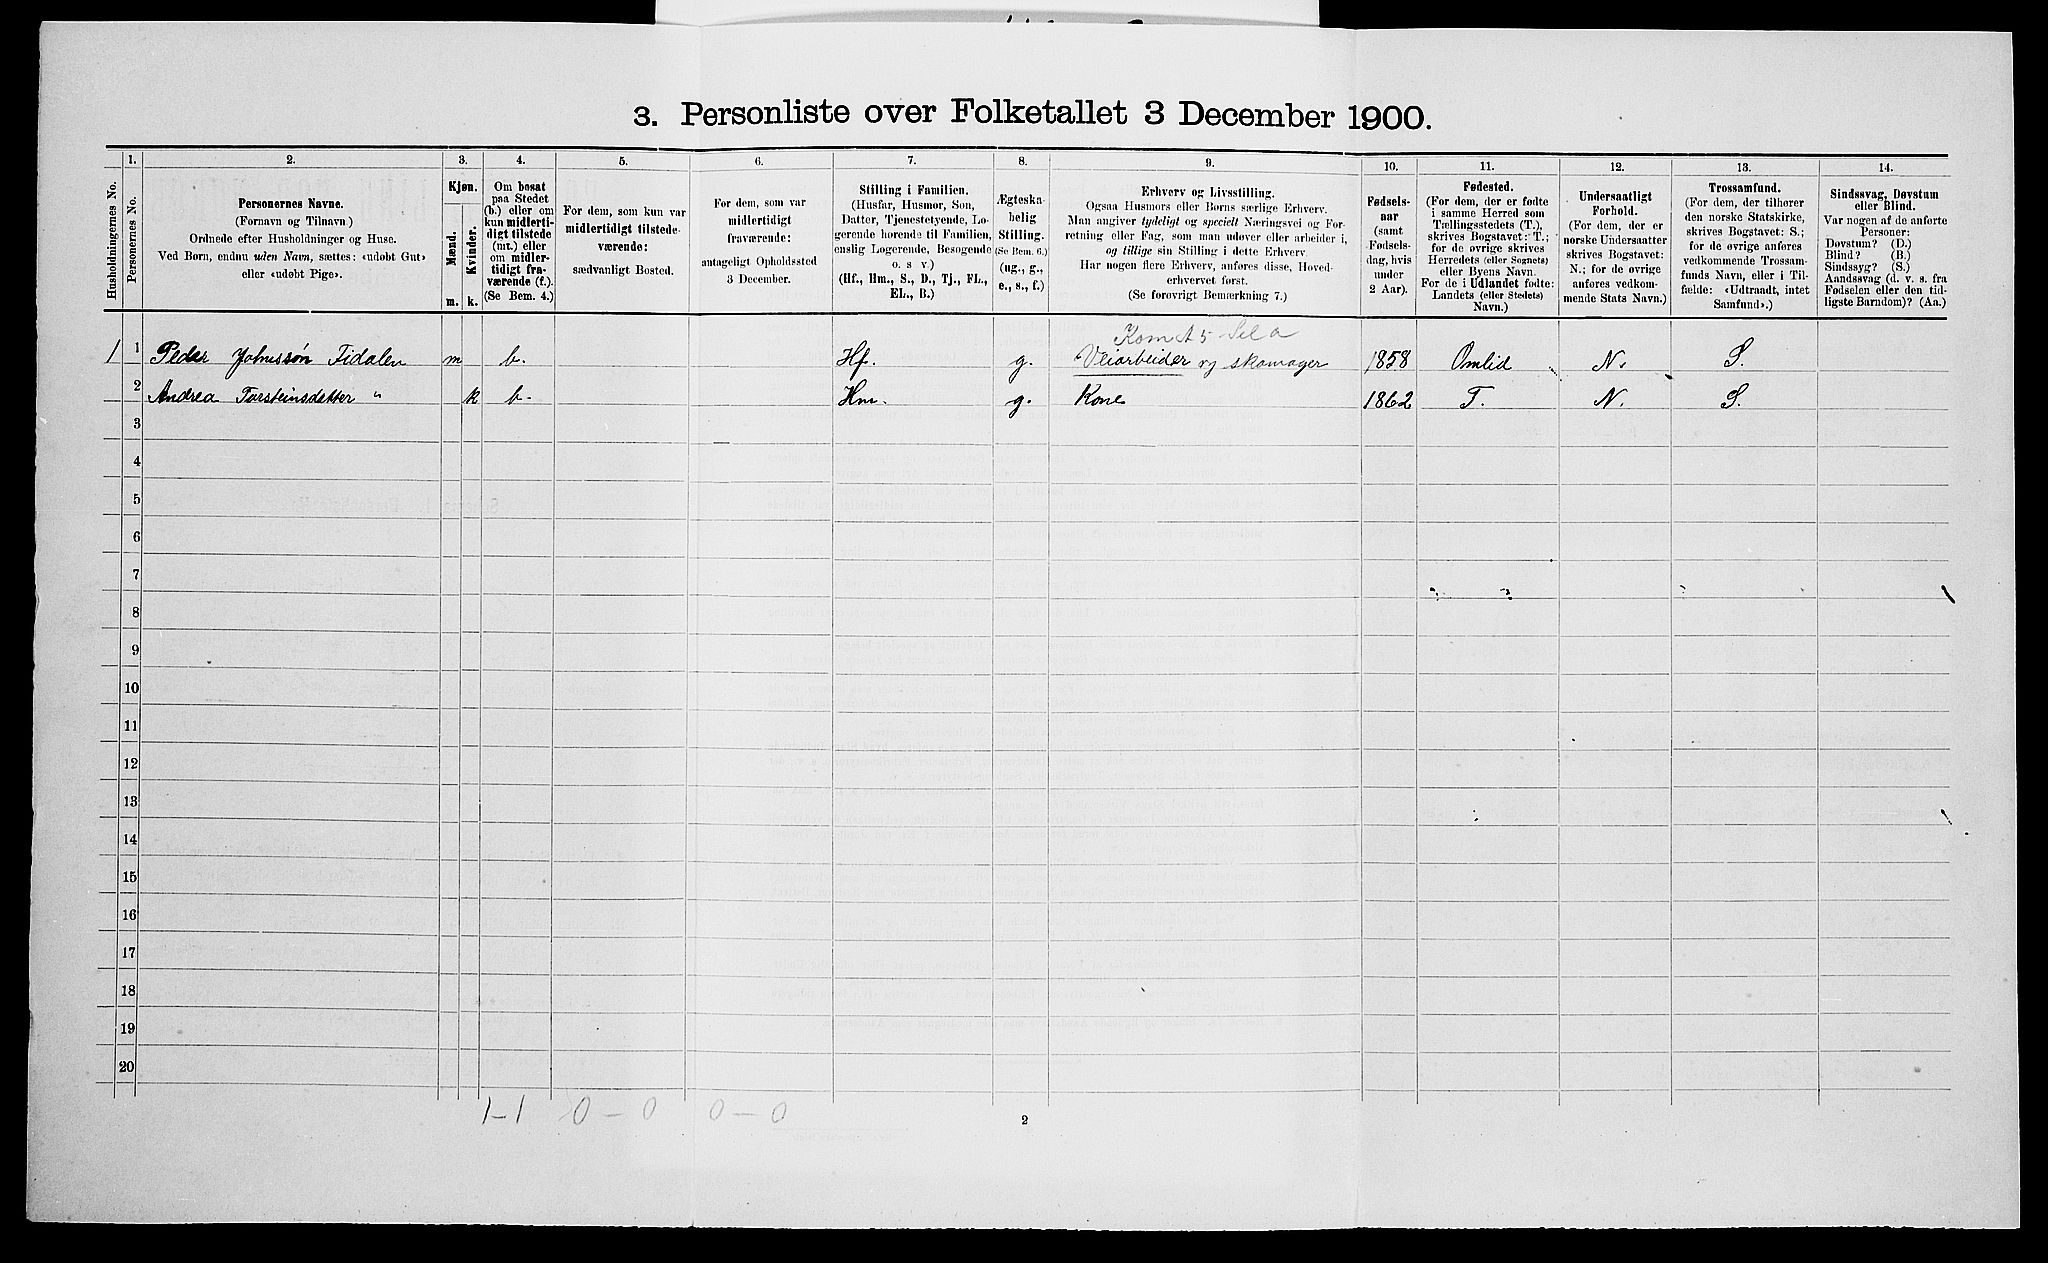 3. Personliste over Folketallet 3 December 1900.
1. 2. 3. 4. 5. 6. 7. 8. 9. 10. 11. 12. 13. 14.
Husholdningernes No.
Personernes No.
Personernes Navne.
(Fornavn og Tilnavn)
Ordnede efter Husholdninger og Huse.
Ved Børn, endnu uden Navn, sættes: «udøbt Gut»
eller «udøbt Pige».
Kjøn.
Mænd.
Kvinder.
m. k.
Om bosat
paa Stedet
(b.) eller om
kun midlerti-
digt tilstede
(mt.) eller
om midler-
tidigt fra-
værende (f.).
(Se Bem. 4.)
For dem, som kun var
midlertidigt tilstede-
værende:
sædvanligt Bosted.
For dem, som var
midlertidigt
fraværende:
antageligt Opholdssted
3 December.
Stilling i Familien.
(Husfar, Husmor, Søn,
Datter, Tjenestetyende, Lo-
gerende hørende til Familien,
enslig Logerende, Besøgende
o. s v.)
(Hf., Hm., S., D., Tj., FL.,
EL., B.)
Ægteska-
belig
Stilling.
(Se Bem. 6.)
(ug., g.,
e., s., f.)
Erhverv og Livsstilling.
Ogsaa Husmors eller Børns særlige Erhverv.
Man angiver tydeligt og specielt Næringsvei og For-
retning eller Fag, som man udøver eller arbeider i,
og tillige sin Stilling i dette Erhverv.
Har nogen flere Erhverv, anføres disse, Hoved-
erhvervet først.
(Se forøvrigt Bemærkning 7.)
Fødsels-
aar
(samt
Fødsels-
dag, hvis
under
2 Aar).
Fødested.
(For dem, der er fødte
i samme Herred som
Tællingsstedets (T.),
skrives Bogstavet: T.;
for de øvrige skrives
Herredets (eller Sognets)
eller Byens Navn.
For de i Udlandet fødte:
Landets (eller Stedets)
Navn.)
Undersaatligt
Forhold.
(For dem, der er
norske Undersaatter
skrives Bogstavet:
N.; for de øvrige
anføres vedkom-
mende Stats Navn.)
Trossamfund.
(For dem, der tilhører
den norske Statskirke,
skrives Bogstavet: S.;
for de øvrige anføres
vedkommende Trossam-
funds Navn, eller i Til-
fælde: «Udtraadt, intet
Samfund».)
Sindssvag, Døvstum
eller Blind.
Var nogen af de anførte
Personer:
Døvstum? (D.)
Blind? (B.)
Sindssyg? (S.)
Aandssvag (d. v. s. fra
Fødselen eller den tid-
ligste Barndom)? (Aa.)
1 1 Peder Johnssøn Fidalen m b. Hf. g. Veiarbeider og skomager 1858 Omlid N. S.
2 Andrea Torsteinsdatter " k b. Hm. g. Kone 1862 T. N. S.
3
4
5
6
7
8
9
10
11
12
13
14
15
16
17
18
19
20
1–1 0–0 0–0
2